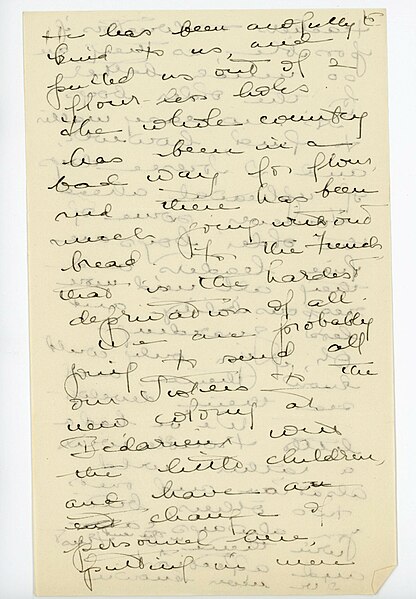 6
He has been awfully
kind to us, and
pulled us out of 2
flour-less holes.
The whole country
has been in a
bad way for flour,
and there has been
much going without
bread. To the French
that is the hardest
deprivation of all.
We are probably
going to send all
our Sisters to the
new colony at
Bédarieux with
the little children,
and have a
change of
personnel here,
putting in men